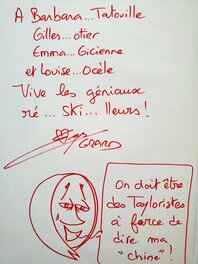 A Barbara...Tatouille
Gilles...otier
Emma...Gicienne
et Louise...Ocèle
Vive les géniaux
ré...ski...lleurs!
GRARD
On doit être
des Tayloristes
à force de
dire ma
"chine"!